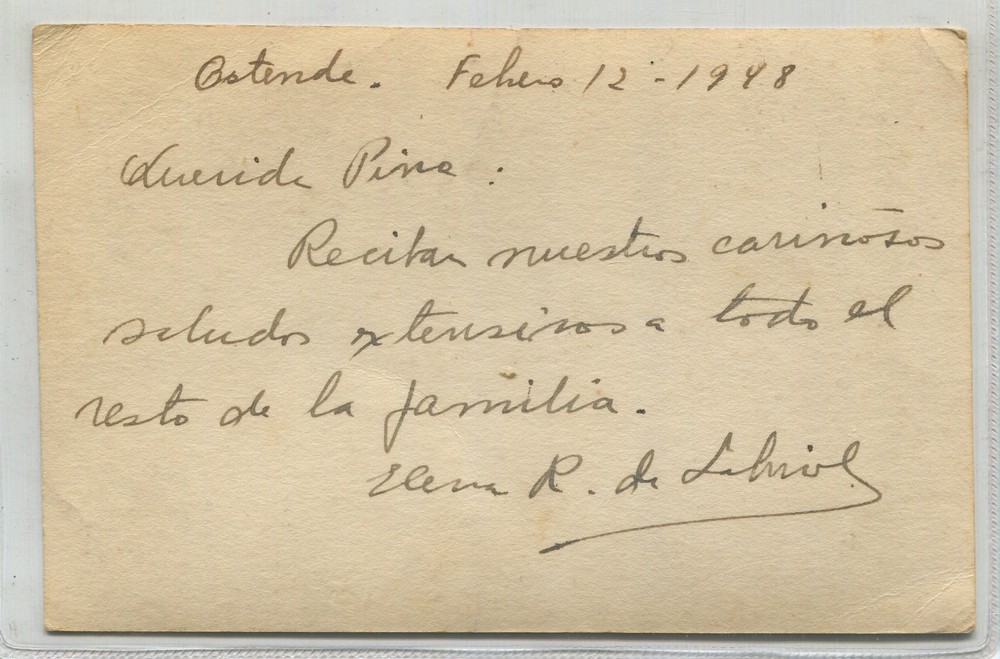 Ostende. Febrero 12 - 1948
Querida Pina:
Reciban nuestros cariñosos
saludos extensivos a todo el
resto de la familia.
Elena R. de